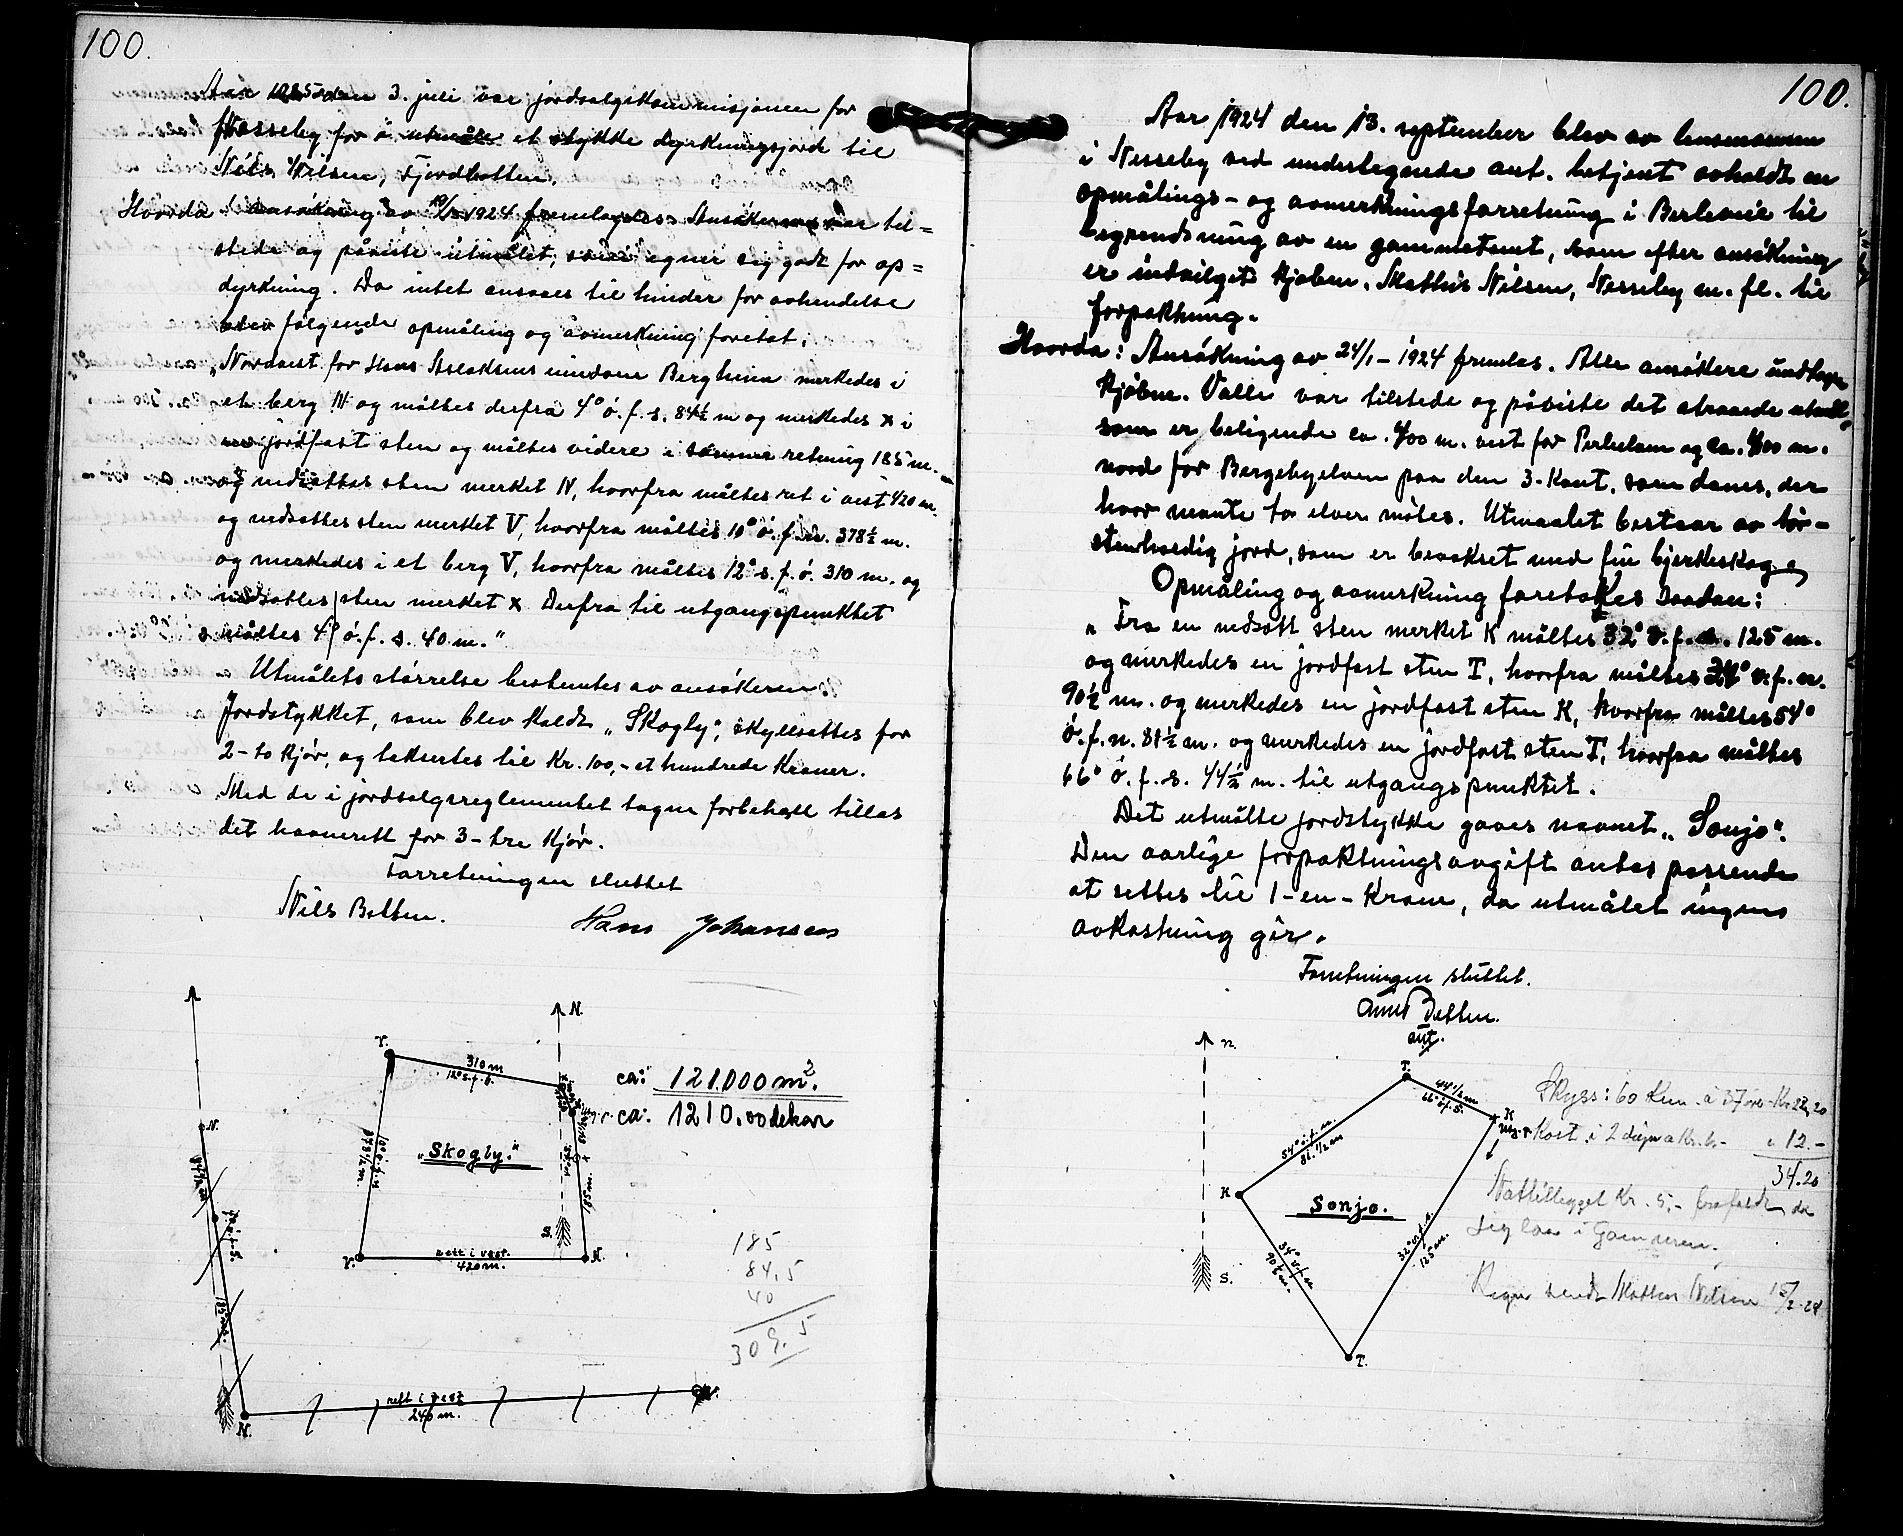 100.
Aar 1925 den 3. juli var jordsalgskommisjonen for
Nesseby for å utmåle et stykke dyrkningsjord til
Nils Nilsen, Fjordbotten.
Hvorda: Ansøkning av 1924 fremlagdes. Ansøkeren var til=
stede og påviste utmålet, som egner sig godt for op=
dyrkning. Da intet ansaaes til hinder for avhendelse
blev følgende opmåling og avmerkning foretat:
„Nordvest for Hans Aslaksens eiendom Bergheim merkedes i
et berg N og måltes derfra 4° ö. f. s. 84½ m og merkedes x i
en jordfast sten og måltes videre i samme retning 185 m.
og nedsattes sten merket N, hvorfra måltes ret i vest 420 m.
og nedsattes sten merket V, hvorfra måltes 10° ö. f. n. 378½ m.
og merkedes i et berg V, hvorfra måltes 12° s. f. ö. 310 m. og
nedsattes sten merket x. Derfra til utgangspunktet
måltes 4° ö. f. s. 40 m.“
Utmålets størrelse bestemtes av ansøkeren
Jordstykket, som blev kaldt „Skogly“, skyllsattes for
2-to kjør, og taksertes til Kr. 100,- et hundrede Kroner.
Med de i jordsalgsreglementet tagne forbehold tillas
det havnerett for 3-tre kjør.
Forretningen sluttet
Nils Betten. Hans Johansen
N.
V.
310 m
12° s. f. ö.
ca: 121.000 m².
ca: 1210.00 dekar
„Skogly.“
10° ö. f. n.
378½ m.
185 m.
S.
V.
rett i vest.
420 m.
N.
N.
84½ m
4° ö. f. s.
185 m.
rett i vest
240 m.
N.
185
84,5
40
309.5
100.
Aar 1924 den 13. september blev av lensmannen
i Nesseby ved underlegnede aut. betjent avholdt en
opmålings- og avmerkningsforretning i Berlevaie til
begrændsning av en gammetomt, som efter ansøkning
er indvilget Kjøbm. Mathis Nilsen, Nesseby m. fl. til
forpaktning.
Hvorda: Ansøkning av 24/1 - 1924 fremlas. Alle ansøkere undtagen
Kjøbm. Valle var tilstede og påviste det attraaede utmål
som er beligende ca. 400 m. vest for Perhelam og ca. 400 m.
nord for Bergebyelven paa den 3-kant, som danes, der
hvor nemte to elver møtes. Utmaalet bestaar av tør-
stenholdig jord, som er bevokset med fin bjerkeskog.
Opmåling og avmerkning foretokes saadan:
„Fra en nedsatt sten merket K måltes 32° v. f. s. 125 m.
og merkedes en jordfast sten T, hvorfra måltes 34° v. f. n.
90½ m. og merkedes en jordfast sten K, hvorfra måltes 54°
ö. f. n. 81½ m. og merkedes en jordfast sten T, hvorfra måltes
66° ö. f. s. 44½ m. til utgangspunktet.
Det utmålte jordstykke gaves navnet „Sonjo“.
Den aarlige forpaktningsavgift antas passende
at settes til 1-en-Krone, da utmålet ingen
avkastning gir.
Forretningen sluttet.
Betten.
aut.
n.
T.
44½ m
66° ö. f. s.
K
54° ö. f. n.
81½ m
K
Sonjo.
34° v. f. n
90½ m.
32° v. f. s.
125 m.
S.
T.
Skyss: 60 Km. à 37 øre - Kr 22,20
Kost i 2 døgn a Kr. 6- „ 12.-
34.20
Nattillegget Kr. 5,- frafaldt da
jeg laa i Gammen.
Regn. sendt Mathis Nilsen 24